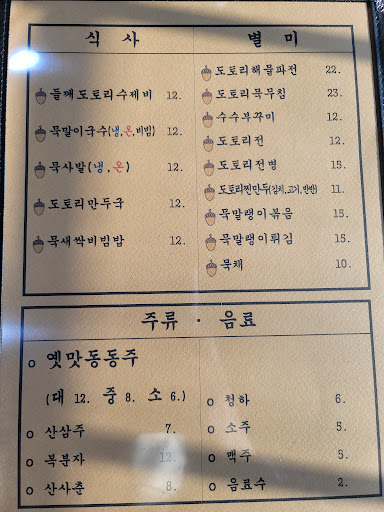 식 사
들깨도토리수제비 12.
묵말이국수(냉,온,비빔) 12.
묵사발(냉,온) 12.
도토리만두국 12.
묵새싹비빔밥 12.
별 미
도토리해물파전 22.
도토리묵무침 23.
수수부꾸미 12.
도토리전 12.
도토리전병 15.
도토리찐만두(김치,고기,반반) 11.
묵말랭이볶음 15.
묵말랭이튀김 15.
묵채 10.
주류 · 음료
o 옛맛동동주
(대 12. 중 8. 소 6.)
o 산삼주 7.
o 복분자 12.
o 산사춘 8.
o 청하 6.
o 소주 5.
o 맥주 5.
o 음료수 2.